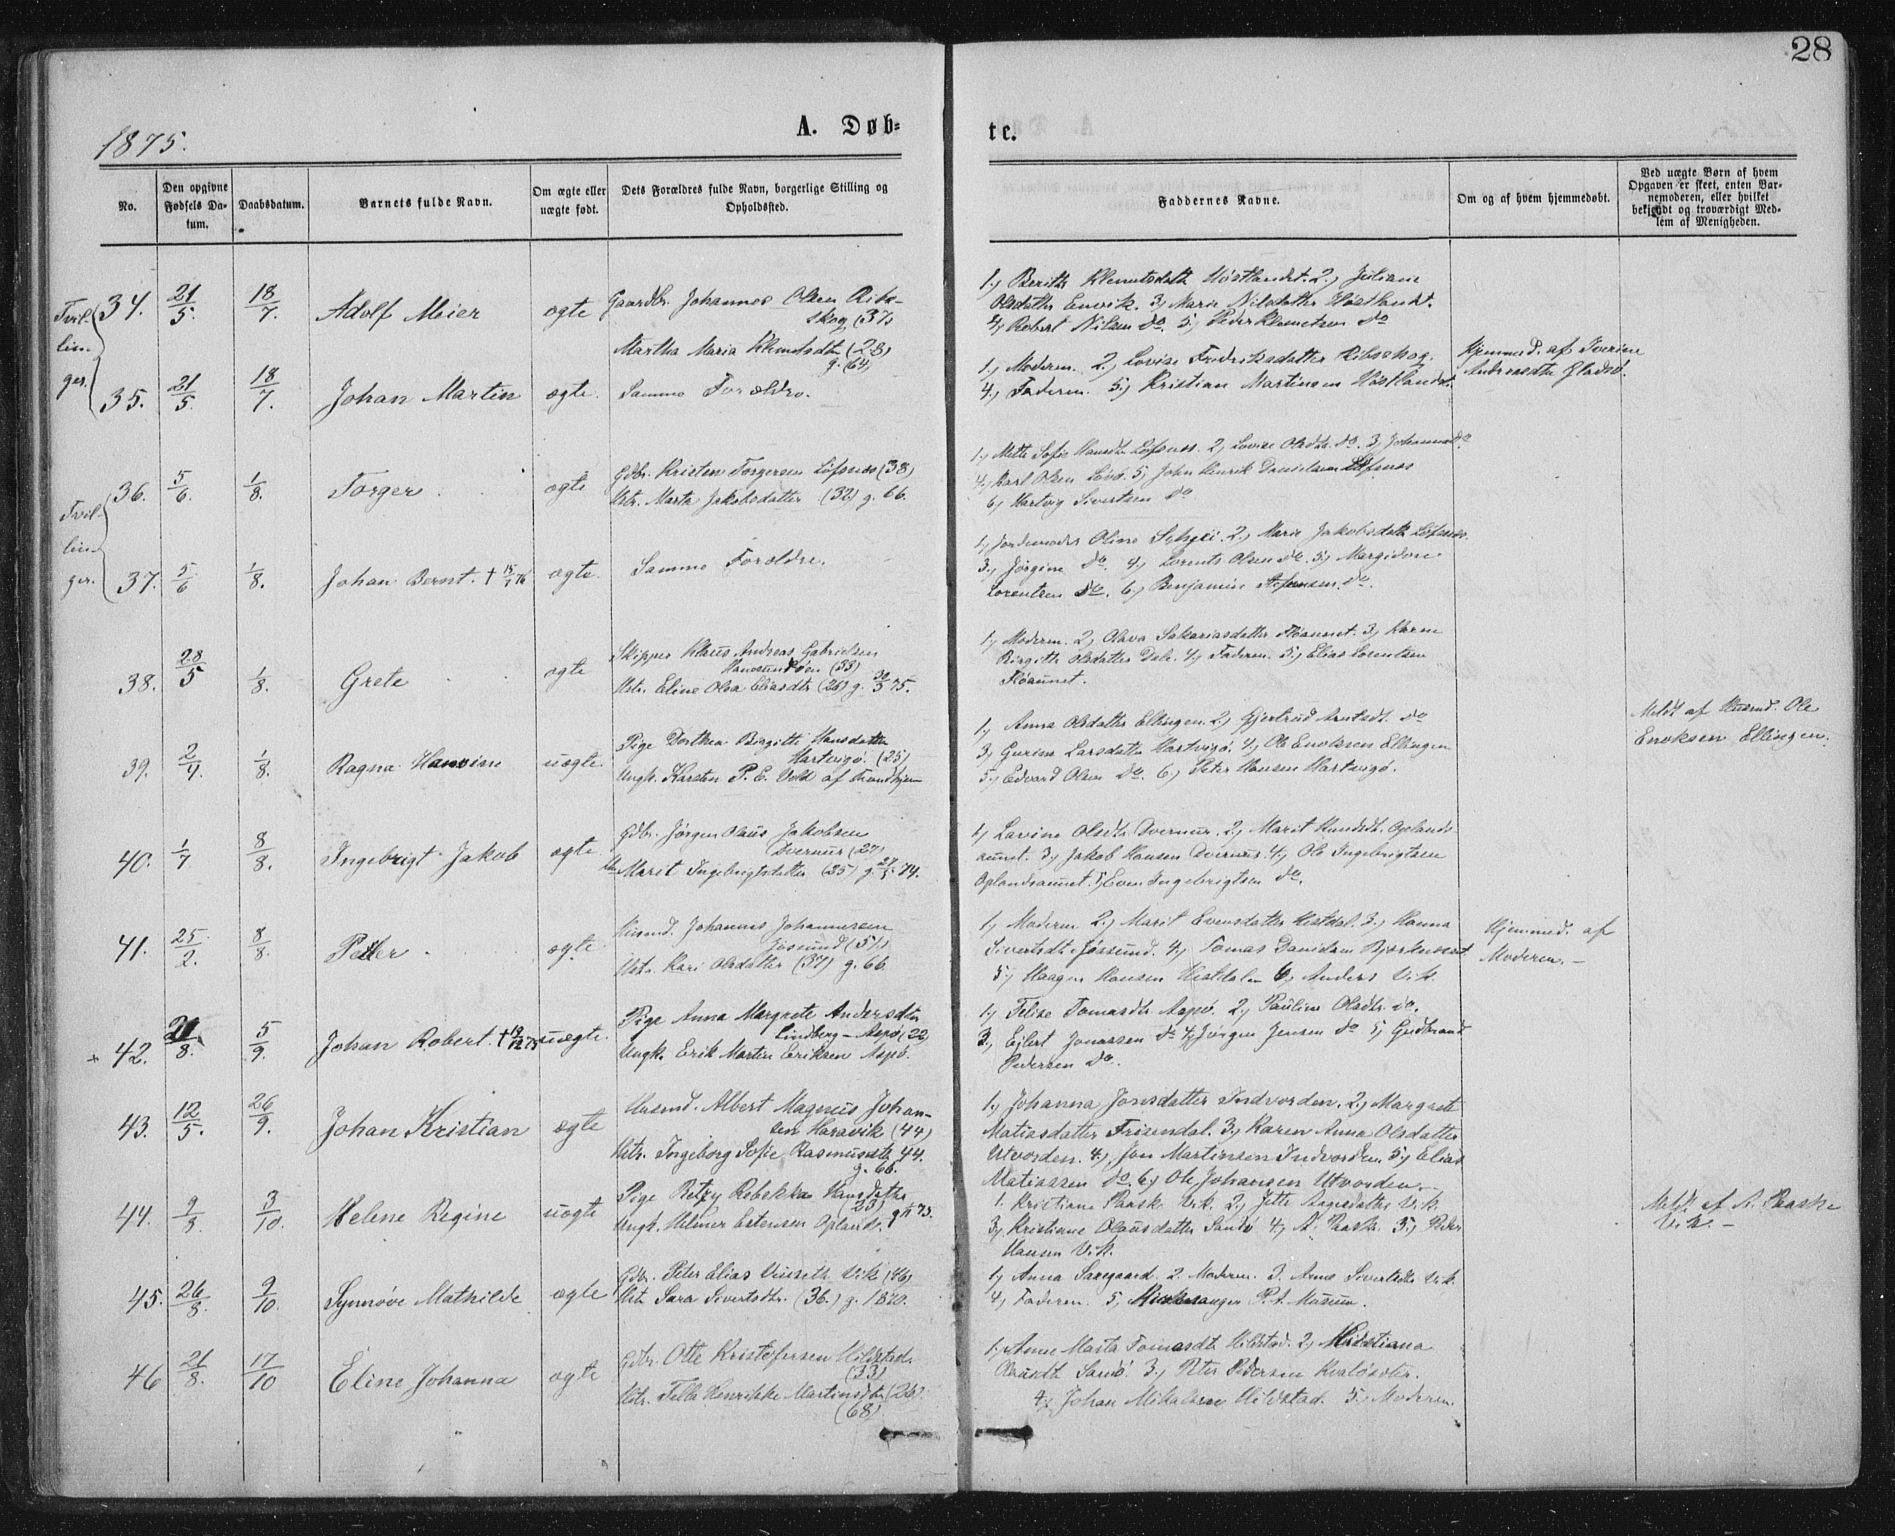 28
1875.
A. Døb-
te.
No.
Den opgivne Fødsels Da-tum.
Daabsdatum.
Barnets fulde Navn.
Om ægte eller uægte født.
Dets Forældres fulde Navn, borgerlige Stilling og Opholdssted.
Faddernes Navne.
Om og af hvem hjemmedøbt.
Ved uægte Børn af hvem Opgaven er skeet, enten Bar-nemoderen, eller hvilket bekjendt og troværdigt Med-lem af Menigheden.
Tvil-
lin-
ger.
34. 21/5 18/7. Adolf Meier ægte Gaardbr. Johannes Olsen Ribs-
skog (37)
Martha Maria Klemetsdtr (28)
g. (64)
1, Berith Klemetsdatter Høstlandet. 2, Juliane
Olsdatter Emvik. 3, Marie Nilsdatter Høstlandet.
4, Robert Nilsen do. 5, Peder Klemetsen do
35. 21/5. 18/7. Johan Martin ægte. Samme Forældre.
1, Moderen. 2, Lovise Fredriksdatter Ribsskog.
4, Faderen. 5, Kristian Martinsen Høstlandet.
Hjemmed. af Iverine
Andreasdtr Gladsø.
Tvil-
lin-
ger.
36. 5/6. 1/8. Torger ægte Gdbr. Kristen Torgersen Løfsnes (38)
Hstr. Marta Jakobsdatter (32) g. 66.
1, Mette Sofie Hansdtr Løfsnes. 2, Lovise Olsdtr. do. 3, Johanna do
4, Karl Olsen Løvø. 5, John Henrik Danielsen Løfsnes
6, Hartvig Sivertsen do
37. 5/6 1/8. Johan Bernt. † 15/1 76 ægte. Samme Forældre.
1, Jordemoder Oline 2, Marie Jakobsdatter Løfsnes.
3, Jørgine do. 4, Lorents Olsen do. 5, Margidore
Lorentsen do. 6, Benjamin do.
38. 28/5 1/8. Grete ægte Skipper Klaus Andreas Gabrielsen
(55)
Hstr. Eline Olsa Eliasdtr (26) g. 30/3 75.
1, Moderen. 2, Olava Sakariasdatter Fløannet. 3, Karen
Birgitte Olsdatter Dale. 4, Faderen. 5, Elias Lorentsen
Fløannet.
39. 2/4. 1/8. Ragna Hansine uægte. Pige Dorthea Birgitte Hansdatter
Hartvigø. (25)
Ungk. Karsten P. E. Veld af Trondhjem
1, Anna Olsdatter Ellingen. 2, Gjertrud Arntsdt. do
3, Gurine Larsdatter Hartvigø. 4, Ole Enoksen Ellingen
5, Edvard Olsen do. 6, Peter Hansen Hartvigø.
Meldt af Husmd. Ole
Enoksen Ellingen.
40. 1/7 8/8. Ingebrigt Jakob ægte Gdbr. Jørgen Olaus Jakobsen
Dvernes (27)
Marit Ingebrigtsdatter (25) g. 74.
1, Lavine Olsdtr Dvernes. 2, Marit Oplands-
aunet. 3, Jakob Hansen Dvernes. 4, Ole Ingebrigtsen
Oplandsaunet. 5, Even Ingebrigtsen do.
41. 25/2. 8/8. Petter ægte Husmd. Johannes Johannesen
Jøssund (51)
Hstr. Kari Olsdatter (37) g. 66.
1, Moderen. 2, Marit Evensdatter Hestdal. 3, Hanna
Sivertsdt Jøssund. 4, Tomas Danielsen
5, Haagen Hansen Hestdalen 6, Anders Vik.
Hjemmed. af
Moderen. -
+ 42. 21/8. 5/9. Johan Robert. † 19/12 75 uægte. Pige Anna Margrete Andersdtr
Lindberg - Aspø (22)
Ungk. Erik Martin Eriksen Aspø.
1, Tomasdtr Aspø. 2, Pauline Olsdtr. do.
3, Ejlert Jonassen do 4, Jørgen Jensen do 5, Gudbrand
Pedersen do.
43. 12/5. 26/9. Johan Kristian ægte Husmd. Albert Magnus Johan-
sen Haravik (44)
Hstr. Ingeborg Sofie Rasmusdtr 44.
g. 66.
1, Johanna Jonsdatter Indvorden. 2, Margrete
Matiasdatter Frisendal. 3, Karen Anna Olsdatter
Utvorden. 4, Jon Martinsen Indvorden. 5, Elias
Matiassen do. 6, Ole Johansen Utvorden.
44. 9/8 3/10. Helene Regine uægte Pige Betzy Rebekka Hansdatter
(23)
Ungk. Helmer Estensen Opland.
1. Kristiane Paaske Vik. 2, Jette Aagesdatter Vik.
3, Kristiane Olausdatter Sandø 4, A. Paaske. 5, Peder
Hansen Vik.
Meldt af A. Paaske
Vik. -
45. 26/8. 9/10. Synnøve Mathilde ægte Gdbr. Peter Elias Vik (46)
Hstr Sara Sivertsdtr. (36.) g. 1870.
1, Anna Saagaard. 2. Moderen. 3. Anne Sivertsdtr Vik.
4, Faderen. 5, Kirkesanger P. A. Musum.
46 21/8. 17/10 Eline Johanna ægte Gdbr. Otte Kristofersen Hildstad.
(33)
Hstr. Henrikke Martinsdtr (26)
(68)
1, Anne Marta Tomasdt Hildstad. 2, Kristiana
Olausdt Sandø. 3, Peter Pedersen
4, Johan Mikalsen Hildstad. 5, Moderen.